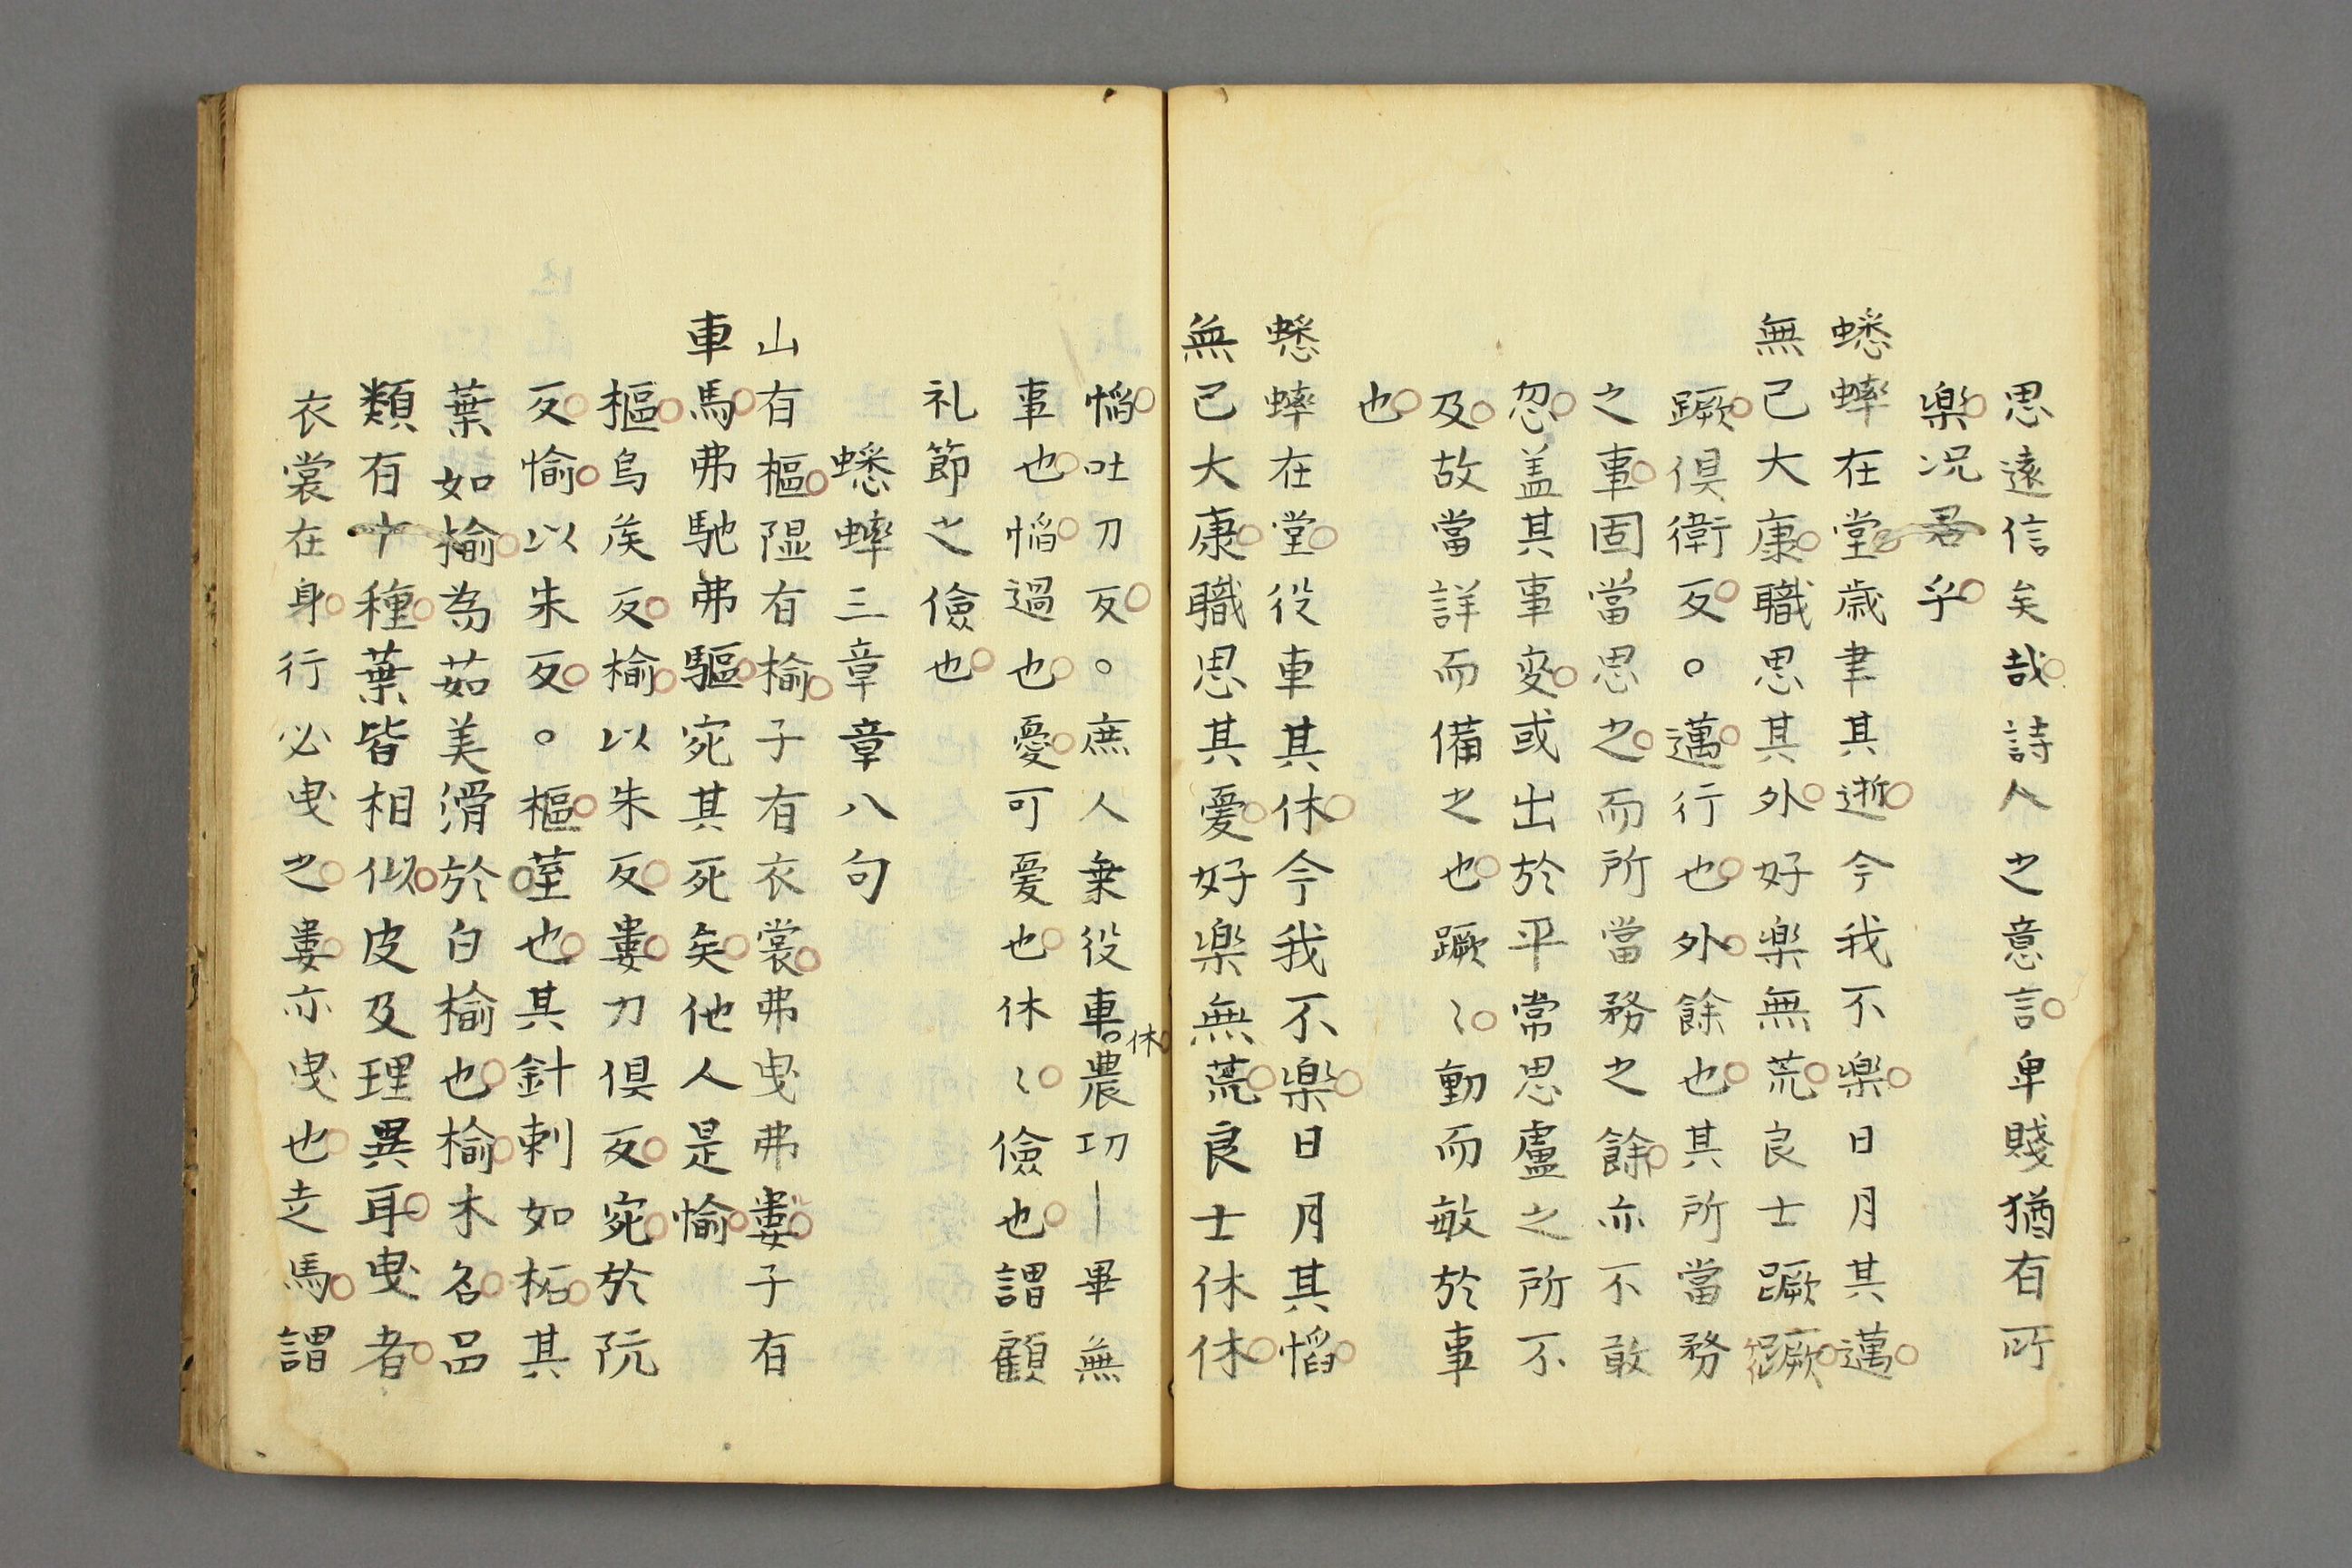 思遠信矣哉詩人之意言卑賤猶有所
楽况君乎
蟋蟀在堂歳聿其逝今我不楽日月其邁
無已大康職思其外好楽無荒良士蹶蹶
蹶俱衛反。邁行也外餘也其所當務
之事固當思之而所當務之餘亦不敢
忽盖其事変或出於平常思盧之所不
及故當詳而備之也蹶〻動而敏於事
也
蟋蟀在堂役車其休今我不楽日月其慆
無已大康職思其憂好楽無荒良士休休
慆吐刀反。庶人乗役車。農功|畢無
休
事也慆過也憂可憂也休〻儉也謂顧
礼節之儉也
蟋蟀三章章八句
山有樞隰有榆子有衣裳弗曳弗婁子有
車馬弗馳弗驅宛其死矣他人是愉
樞烏矦反榆以朱反婁力俱反宛於阮
反愉以朱反。樞荎也其針刺如柘其
葉如榆為茹美滑於白榆也榆木名呂
類有十種葉皆相似皮及理異耳曳者
衣裳在身行必曳之婁亦曳也走馬謂